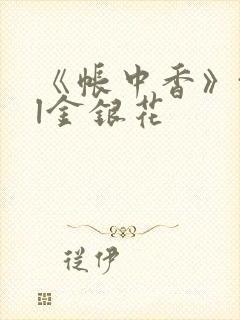 《帐中香》
|金银花
从伊